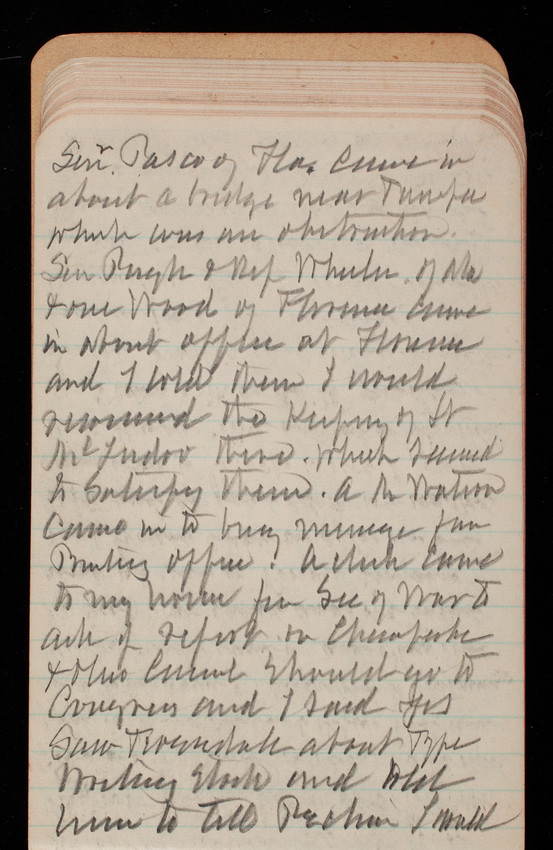 Senr. Pasco of Fla. Came in
about a bridge near Tampa
which was an obstruction.
Sen Pugh & Rep Wheeler of Ala
& one Wood of Florence came
in about office at Florence
and I told them I would
recommend the Keeping of Lt
McIndoe there. which seemed
to satisfy them. A Mr Watson
Came in to bring message from
Printing office? A clerk came
to my house from Sec of War to
ask if report on Chesapeake
& Ohio Canal should go to
Congress and I said yes
Saw Truesdale about Type
Writing Clerk and told
him to tell I would